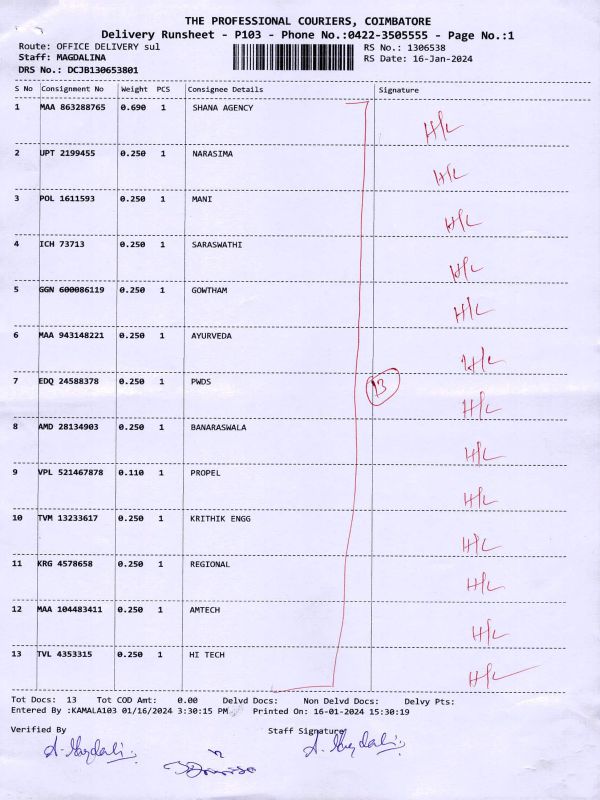 THE PROFESSIONAL COURIERS, COIMBATORE
Delivery Runsheet - P103 - Phone No.:0422-3505555 - Page No.:1
Route: OFFICE DELIVERY sul RS No.: 1306538
Staff: MAGDALINA RS Date: 16-Jan-2024
DRS No.: DCJB130653801
S No Consignment No Weight PCS Consignee Details Signature
1 MAA 863288765 0.690 1 SHANA AGENCY H/L
2 UPT 2199455 0.250 1 NARASIMA H/L
3 POL 1611593 0.250 1 MANI H/L
4 ICH 73713 0.250 1 SARASWATHI H/L
5 GGN 600086119 0.250 1 GOWTHAM H/L
6 MAA 943148221 0.250 1 AYURVEDA H/L
7 EDQ 24588378 0.250 1 PWDS 13 H/L
8 AMD 28134903 0.250 1 BANARASWALA H/L
9 VPL 521467878 0.110 1 PROPEL H/L
10 TVM 13233617 0.250 1 KRITHIK ENGG H/L
11 KRG 4578658 0.250 1 REGIONAL H/L
12 MAA 104483411 0.250 1 AMTECH H/L
13 TVL 4353315 0.250 1 HI TECH H/L
Tot Docs: 13 Tot COD Amt: 0.00 Delvd Docs: Non Delvd Docs: Delvy Pts:
Entered By :KAMALA103 01/16/2024 3:30:15 PM Printed On: 16-01-2024 15:30:19
Verified By Staff Signature